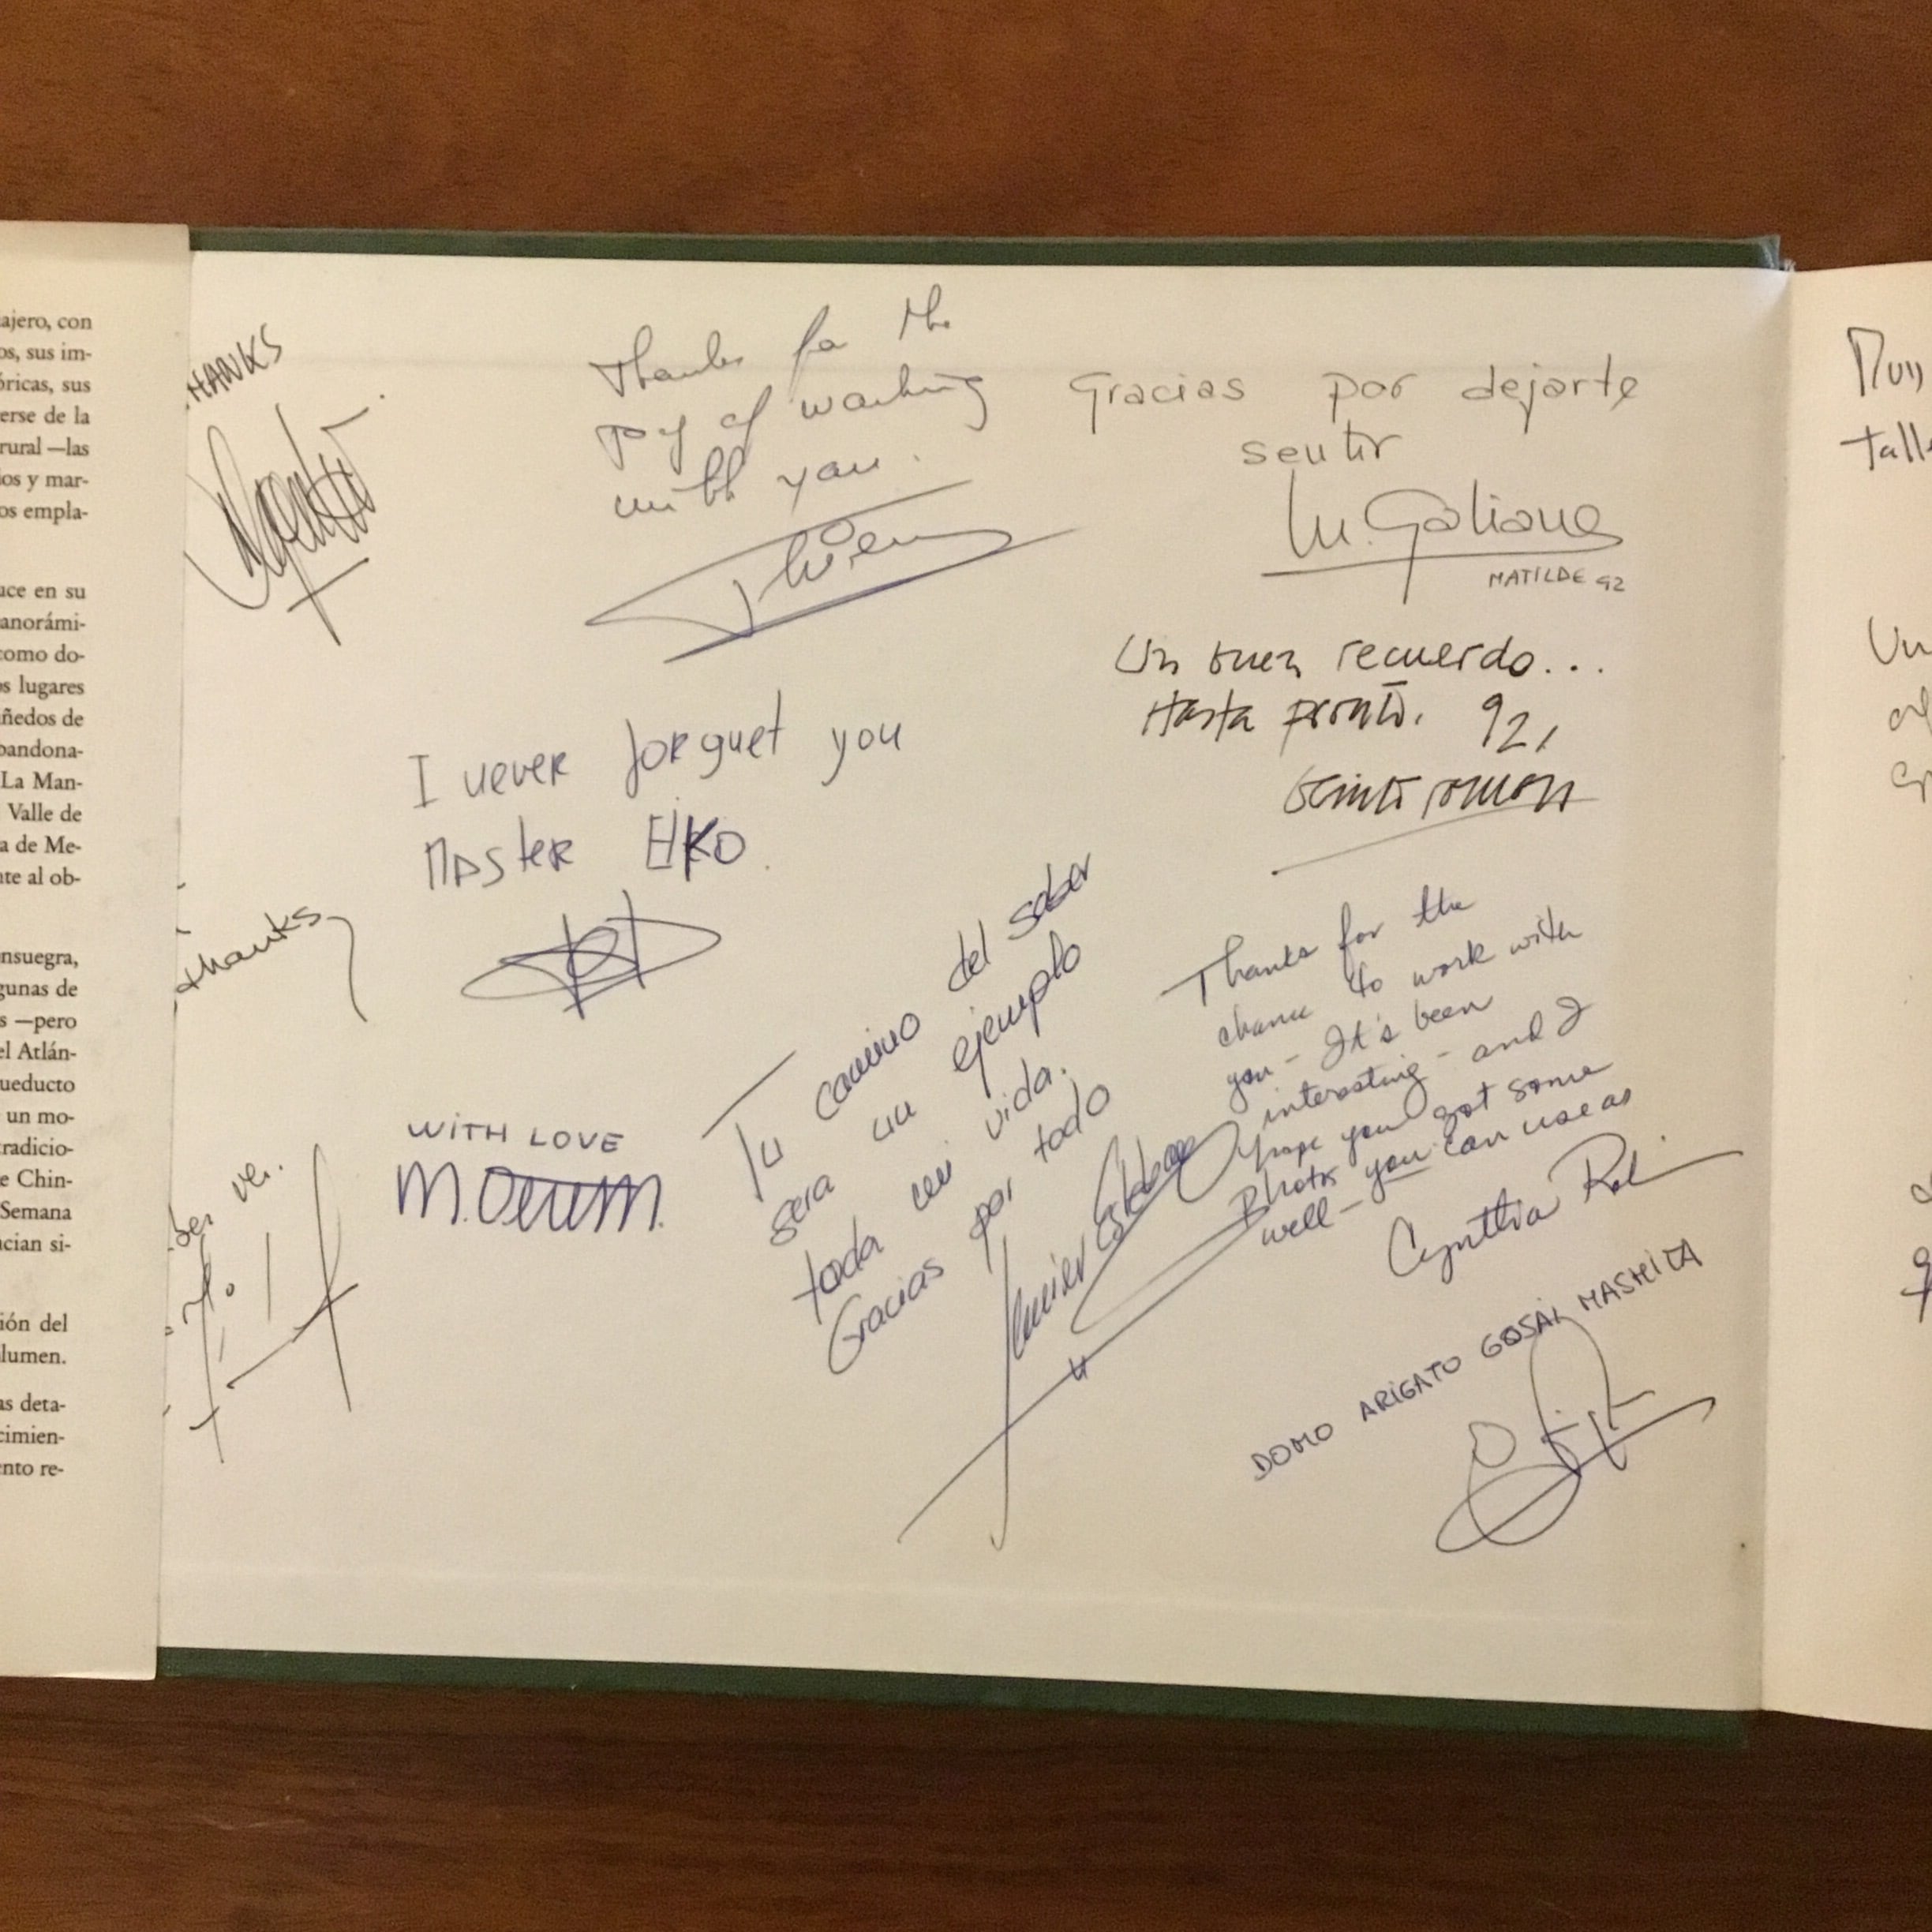 ajero, con
os, sus im-
óricas, sus
erse de la
rural —las
ios y mar-
os empla-
uce en su
anorámi-
como do-
os lugares
iñedos de
bandona-
La Man-
Valle de
a de Me-
nte al ob-
onsuegra,
gunas de
s —pero
el Atlán-
ueducto
un mo-
tradicio-
e Chin-
Semana
ncian si-
ión del
lumen.
as deta-
cimien-
ento re-
HANKS
Thanks for the
joy of working
with you.
Gracias por dejarte
sentir
M. Galiana
MATILDE 92
Un buen recuerdo...
Hasta pronto. 92,
I never forguet you
Master EIKO.
thanks
WITH LOVE
Tu camino del saber
sera un ejemplo
toda mi vida.
Gracias por todo
Javier Esteban
Thanks for the
chance to work with
you - It's been
interesting - and I
hope you got some
photos you can use as
well -
Cynthia
DOMO ARIGATO GOSAI MASHITA
Muy
talle
Un